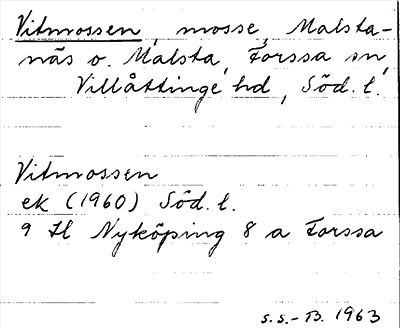 Vitmossen, mosse, Malsta-
näs o. Malsta, Forssa sn,
Villåttinge hd, Söd. l.
Vitmossen
ek (1960) Söd. l.
9 H Nyköping 8 a Forssa
S.S.-B. 1963